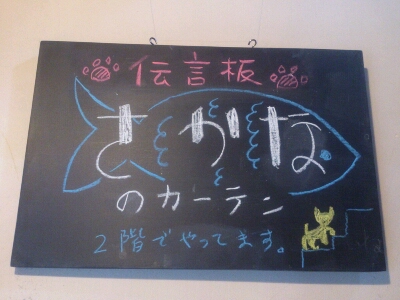 伝言板
さかな
のカーテン
2階でやってます。